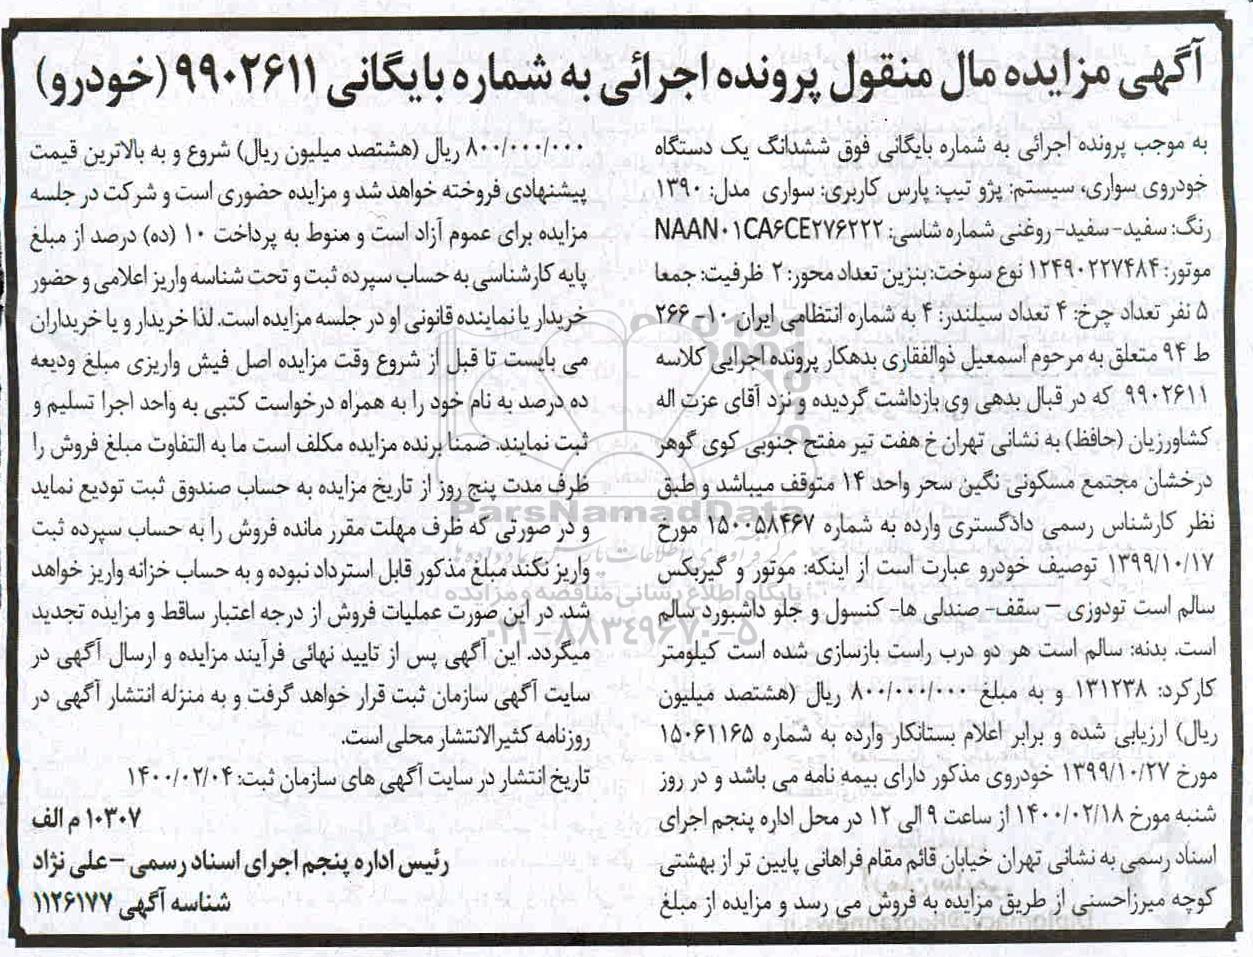 آگهی مزایده مال منقول پرونده اجرائی به شماره بایگانی ۹۹۰۲۶۱۱ (خودرو)
به موجب پرونده اجرائی به شماره بایگانی فوق ششدانگ یک دستگاه
خودروی سواری، سیستم: پژو تیپ: پارس کاربری: سواری مدل: ۱۳۹۰
رنگ: سفید- سفید- روغنی شماره شاسی: NAAN۰۱CA۶CE۲۷۶۲۲۲
موتور: ۱۲۴۹۰۲۲۷۴۸۴ نوع سوخت: بنزین تعداد محور: ۲ ظرفیت: جمعا
۵ نفر تعداد چرخ: ۴ تعداد سیلندر: ۴ به شماره انتظامی ایران ۱۰- ۲۶۶
ط ۹۴ متعلق به مرحوم اسمعیل ذوالفقاری بدهکار پرونده اجرایی کلاسه
۹۹۰۲۶۱۱ که در قبال بدهی وی بازداشت گردیده و نزد آقای عزت اله
کشاورزیان (حافظ) به نشانی تهران خ هفت تیر مفتح جنوبی کوی گوهر
درخشان مجتمع مسکونی نگین سحر واحد ۱۴ متوقف میباشد و طبق
نظر کارشناس رسمی دادگستری وارده به شماره ۱۵۰۰۵۸۴۶۷ مورخ
۱۳۹۹/۱۰/۱۷ توصیف خودرو عبارت است از اینکه: موتور و گیربکس
سالم است تودوزی – سقف- صندلی ها- کنسول و جلو داشبورد سالم
است. بدنه: سالم است هر دو درب راست بازسازی شده است کیلومتر
کارکرد: ۱۳۱۲۳۸ و به مبلغ ۸۰۰/۰۰۰/۰۰۰ ریال (هشتصد میلیون
ریال) ارزیابی شده و برابر اعلام بستانکار وارده به شماره ۱۵۰۶۱۱۶۵
مورخ ۱۳۹۹/۱۰/۲۷ خودروی مذکور دارای بیمه نامه می باشد و در روز
شنبه مورخ ۱۴۰۰/۰۲/۱۸ از ساعت ۹ الی ۱۲ در محل اداره پنجم اجرای
اسناد رسمی به نشانی تهران خیابان قائم مقام فراهانی پایین تر از بهشتی
کوچه میرزاحسنی از طریق مزایده به فروش می رسد و مزایده از مبلغ
۸۰۰/۰۰۰/۰۰۰ ریال (هشتصد میلیون ریال) شروع و به بالاترین قیمت
پیشنهادی فروخته خواهد شد و مزایده حضوری است و شرکت در جلسه
مزایده برای عموم آزاد است و منوط به پرداخت ۱۰ (ده) درصد از مبلغ
پایه کارشناسی به حساب سپرده ثبت و تحت شناسه واریز اعلامی و حضور
خریدار یا نماینده قانونی او در جلسه مزایده است. لذا خریدار و یا خریداران
می بایست تا قبل از شروع وقت مزایده اصل فیش واریزی مبلغ ودیعه
ده درصد به نام خود را به همراه درخواست کتبی به واحد اجرا تسلیم و
ثبت نمایند. ضمنا برنده مزایده مکلف است ما به التفاوت مبلغ فروش را
ظرف مدت پنج روز از تاریخ مزایده به حساب صندوق ثبت تودیع نماید
و در صورتی که ظرف مهلت مقرر مانده فروش را به حساب سپرده ثبت
واریز نکند مبلغ مذکور قابل استرداد نبوده و به حساب خزانه واریز خواهد
شد. در این صورت عملیات فروش از درجه اعتبار ساقط و مزایده تجدید
میگردد. این آگهی پس از تایید نهائی فرآیند مزایده و ارسال آگهی در
سایت آگهی سازمان ثبت قرار خواهد گرفت و به منزله انتشار آگهی در
روزنامه کثیرالانتشار محلی است.
تاریخ انتشار در سایت آگهی های سازمان ثبت: ۱۴۰۰/۰۲/۰۴
۱۰۳۰۷ م الف
رئیس اداره پنجم اجرای اسناد رسمی – علی نژاد
شناسه آگهی ۱۱۲۶۱۷۷
ParsNamadData
پایگاه اطلاع رسانی مناقصه و مزایده
۰۲۱-۸۸۳۴۹۶۷۰-۵